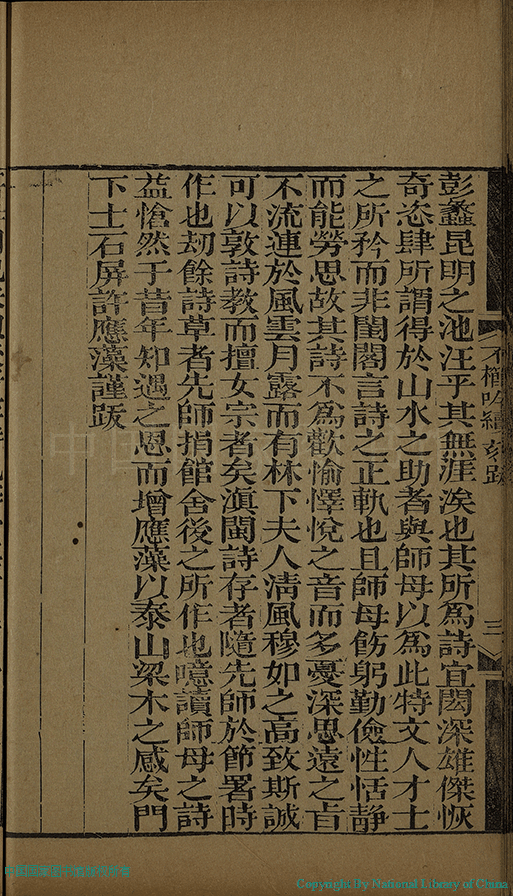 彭蠡昆明之池汪乎其無涯涘也其所為詩宜閎深雄傑恢
奇恣肆所謂得於山水之助者與師母以為此特文人才士
之所矜而非閨閣言詩之正軌也且師母飭躬勤儉性恬靜
而能勞思故其詩不為歡愉懌悅之音而多憂深思遠之㫖
不流連於風雲月露而有林下夫人清風穆如之高致斯誠
可以敦詩教而擅女宗者矣滇閩詩存者隨先師於節署時
作也刼餘詩草者先師捐館舍後之所作也噫讀師母之詩
益愴然于昔年知遇之恩而增應藻以泰山梁木之感矣門
下士石屏許應藻謹跋
不櫛吟續刻跋
三
Copyright By National Library of China